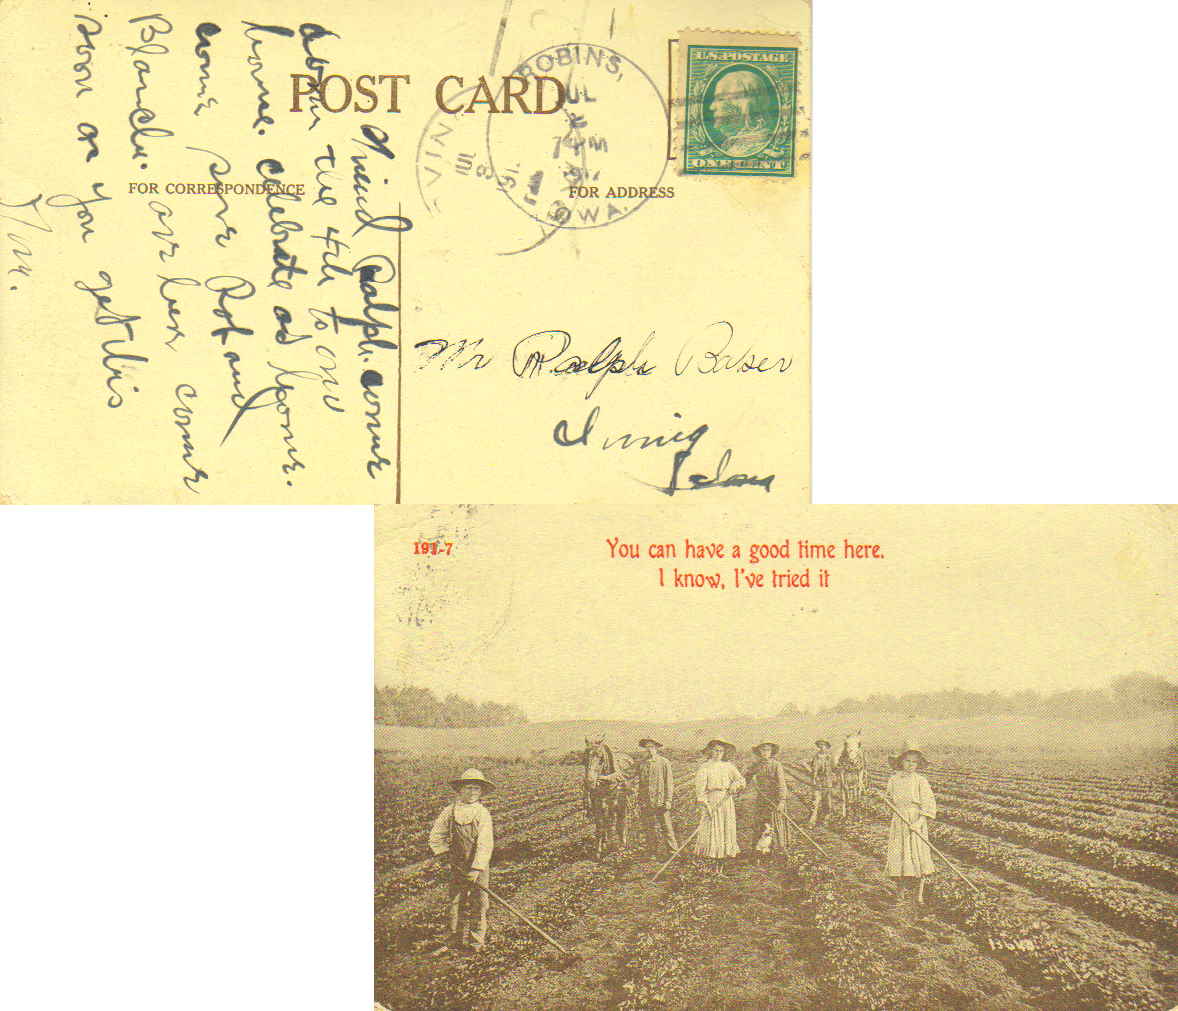 POST CARD
FOR CORRESPONDENCE
FOR ADDRESS
ROBINS,
JUL
IOWA.
U.S. POSTAGE
ONE CENT
Friend Ralph. come
down the 4th to our
home. celebrate at home.
come sure Rob and
Blanche. are here come
soon as you get this
Mr Ralph Baker
Irving
Iowa
191-7
You can have a good time here.
I know, I've tried it